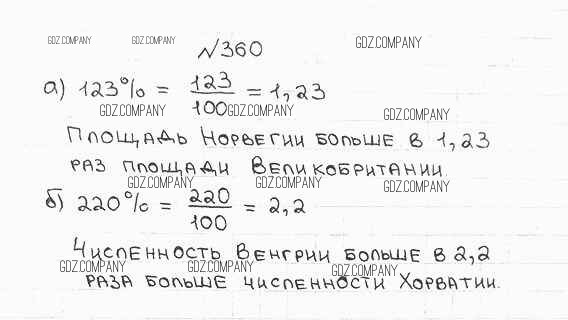 GDZ.COMPANY GDZ.COMPANY №360 GDZ.COMPANY
а) 123% = 123/100 = 1,23
GDZ.COMPANY GDZ.COMPANY GDZ.COMPANY
Площадь Норвегии больше в 1,23
раз площади Великобритании.
GDZ.COMPANY GDZ.COMPANY GDZ.COMPANY
б) 220% = 220/100 = 2,2
Численность Венгрии больше в 2,2
GDZ.COMPANY GDZ.COMPANY GDZ.COMPANY
раза больше численности Хорватии.